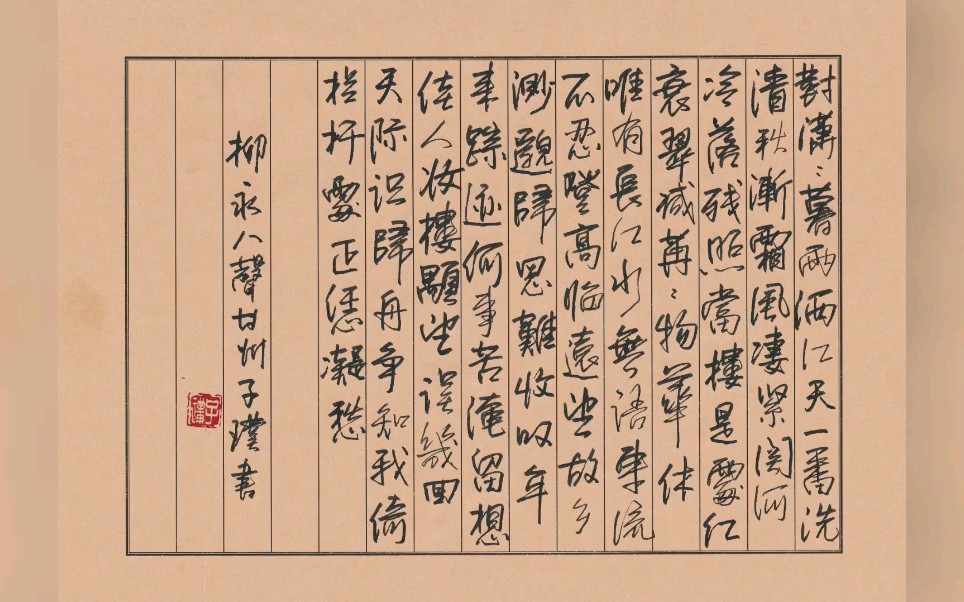 對瀟〻暮雨洒江天一番洗
清秋漸霜風凄緊関河
冷落残照當樓是處红
衰翠减苒〻物華休
唯有長江水無語東流
不忍登高临遠望故乡
渺邈歸思難收叹年
来蹤迹何事苦淹留想
佳人妆樓顒望误幾回
天际识歸舟争知我倚
栏杆處正恁凝愁
柳永八聲甘州子璞書
子璞